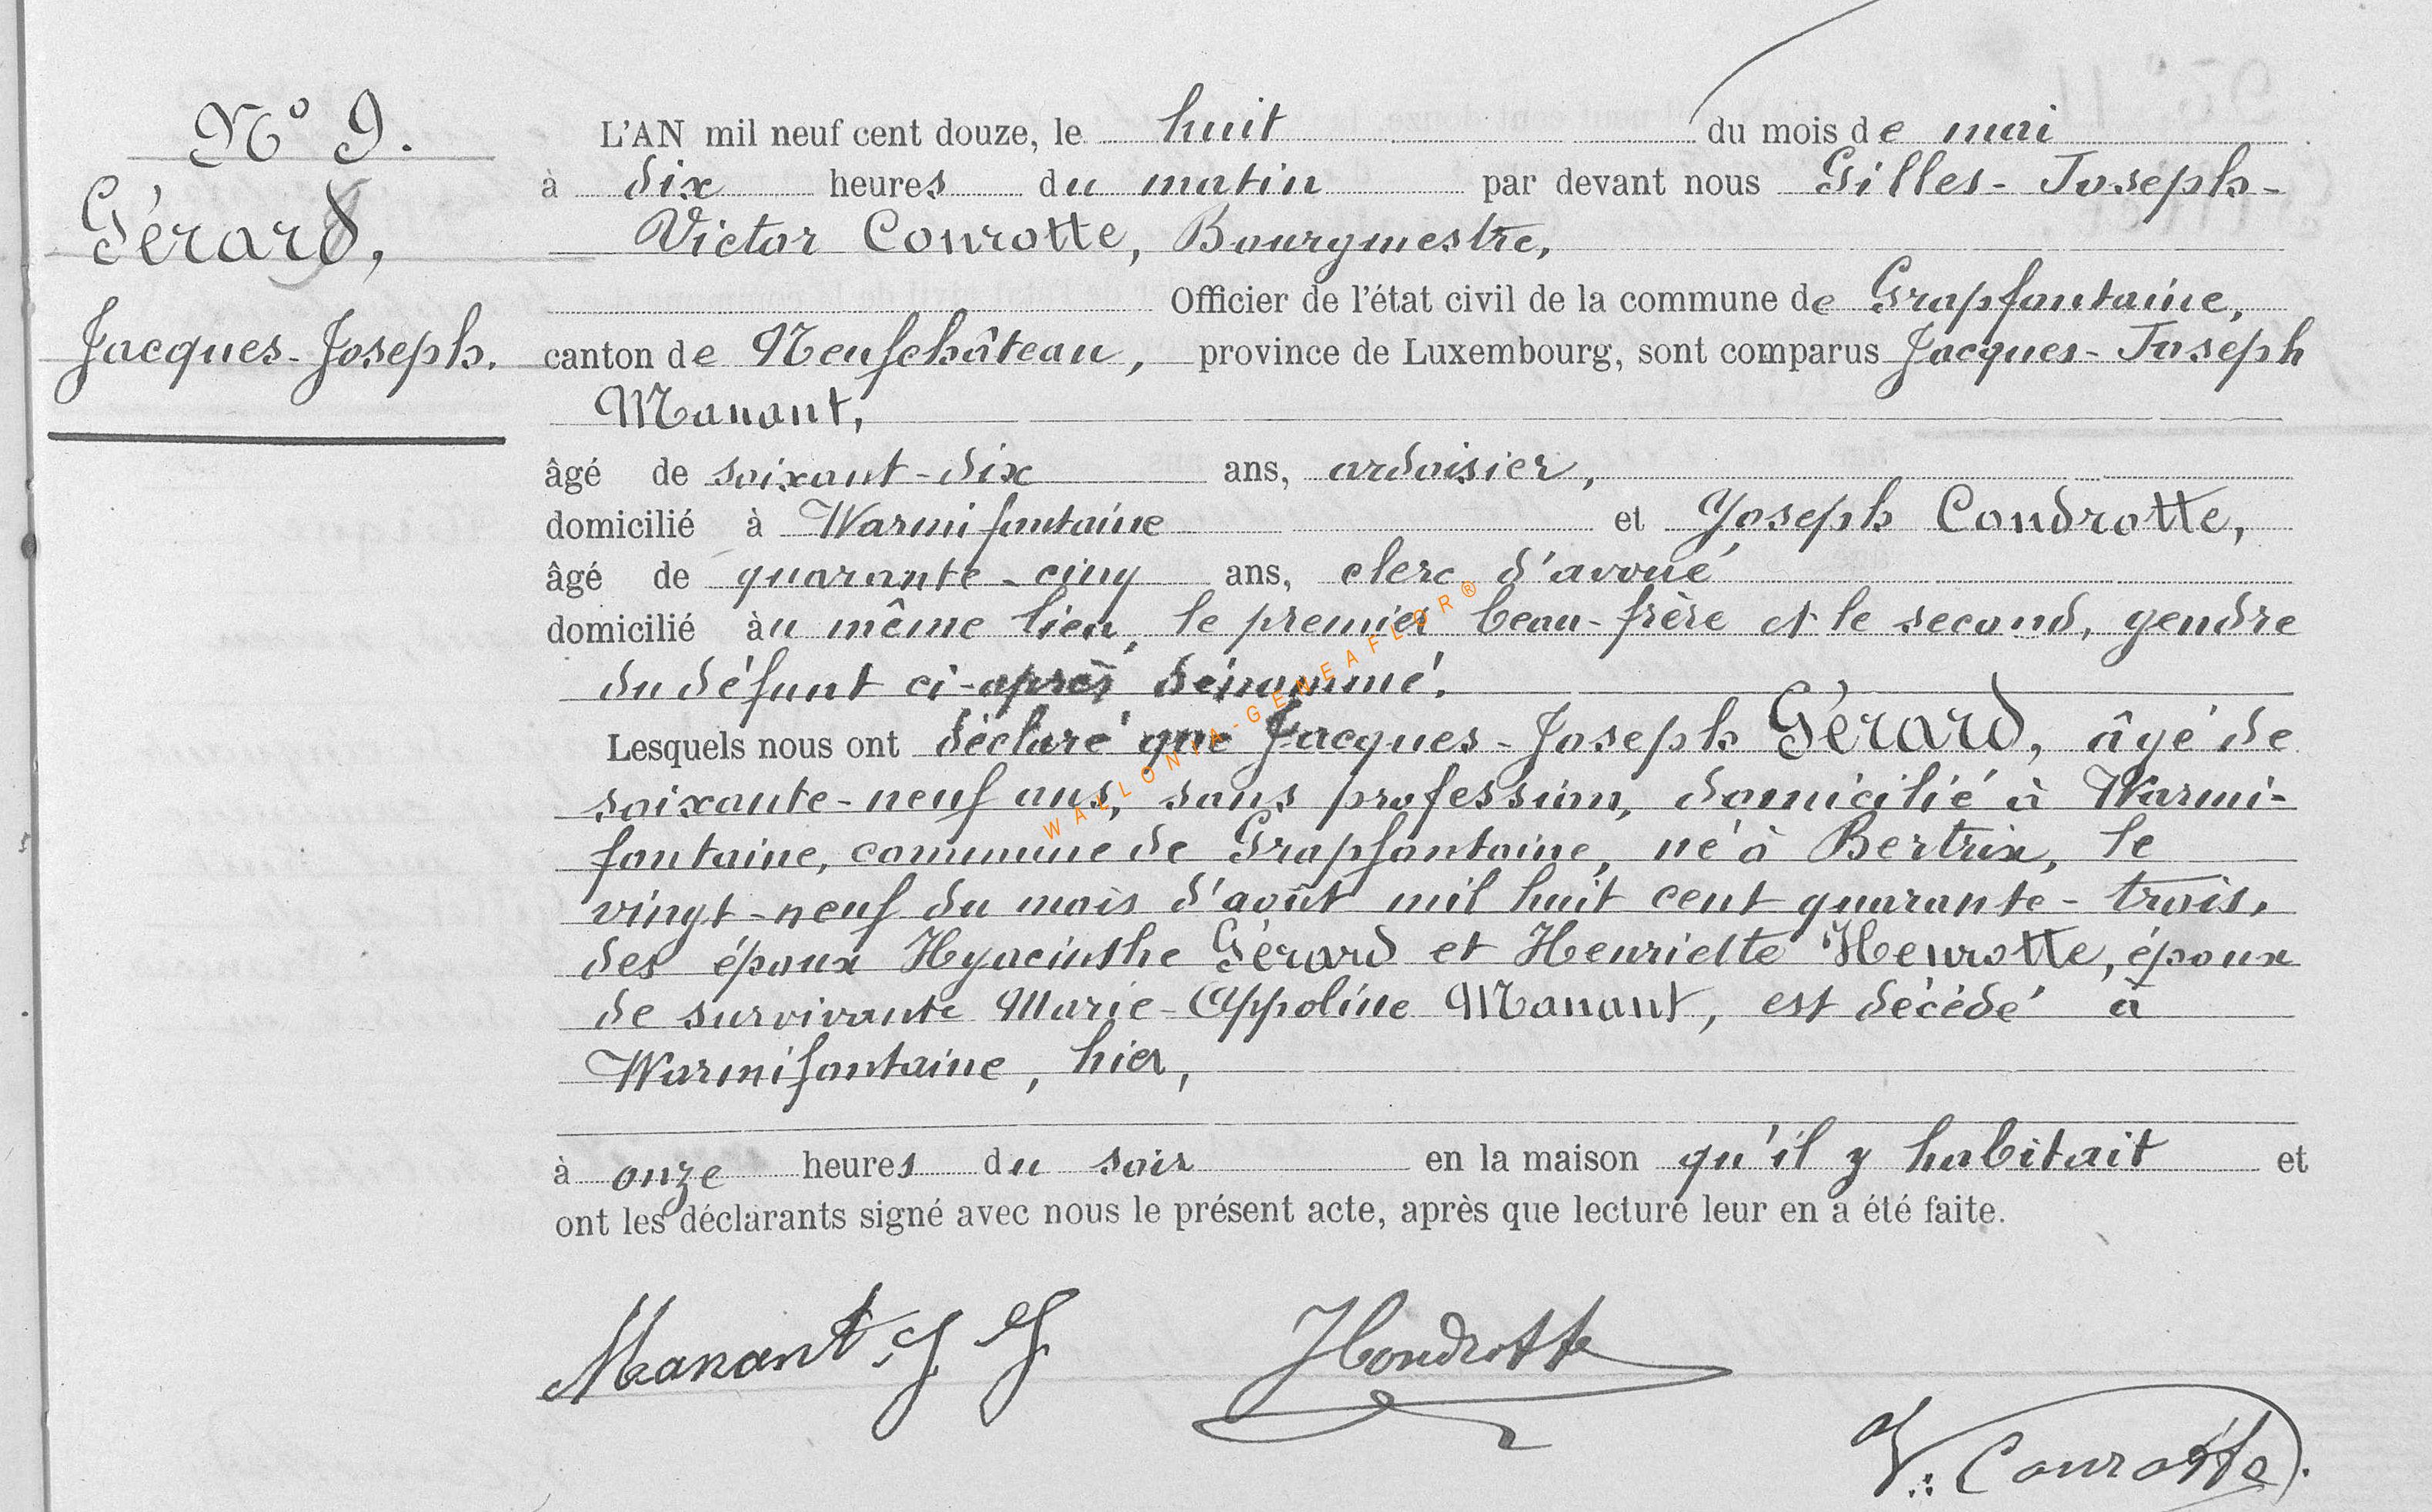 N° 9.
Gérard,
Jacques-Joseph.
L'AN mil neuf cent douze, le huit du mois de mai
à dix heures du matin par devant nous Gilles-Joseph-
Victor Conrotte, Bourgmestre,
Officier de l'état civil de la commune de Grapfontaine,
canton de Neufchâteau, province de Luxembourg, sont comparus Jacques-Joseph
Manant,
âgé de soixant-dix ans, ardoisier,
domicilié à Warmifontaine et Joseph Condrotte,
âgé de quarante-cinq ans, clerc d'avoué
domicilié àu même lieu, le premier beau-frère et le second, gendre
du défunt ci-après dénommé.
Lesquels nous ont déclaré que Jacques-Joseph Gérard, âgé de
soixante-neuf ans, sans profession, domicilié à Warmi-
fontaine, commune de Grapfontaine, né à Bertrix, le
vingt-neuf du mois d'août mil huit cent quarante-trois,
des époux Hyacinthe Gérard et Henriette Henrotte, époux
de survivante Marie-Appoline Manant, est décédé à
Warmifontaine, hier,
à onze heures du soir en la maison qu'il y habitait et
ont les déclarants signé avec nous le présent acte, après que lecture leur en a été faite.
Manant J J
JCondrotte
V. Conrotte.
WALLONIA-GENEAFLOR®